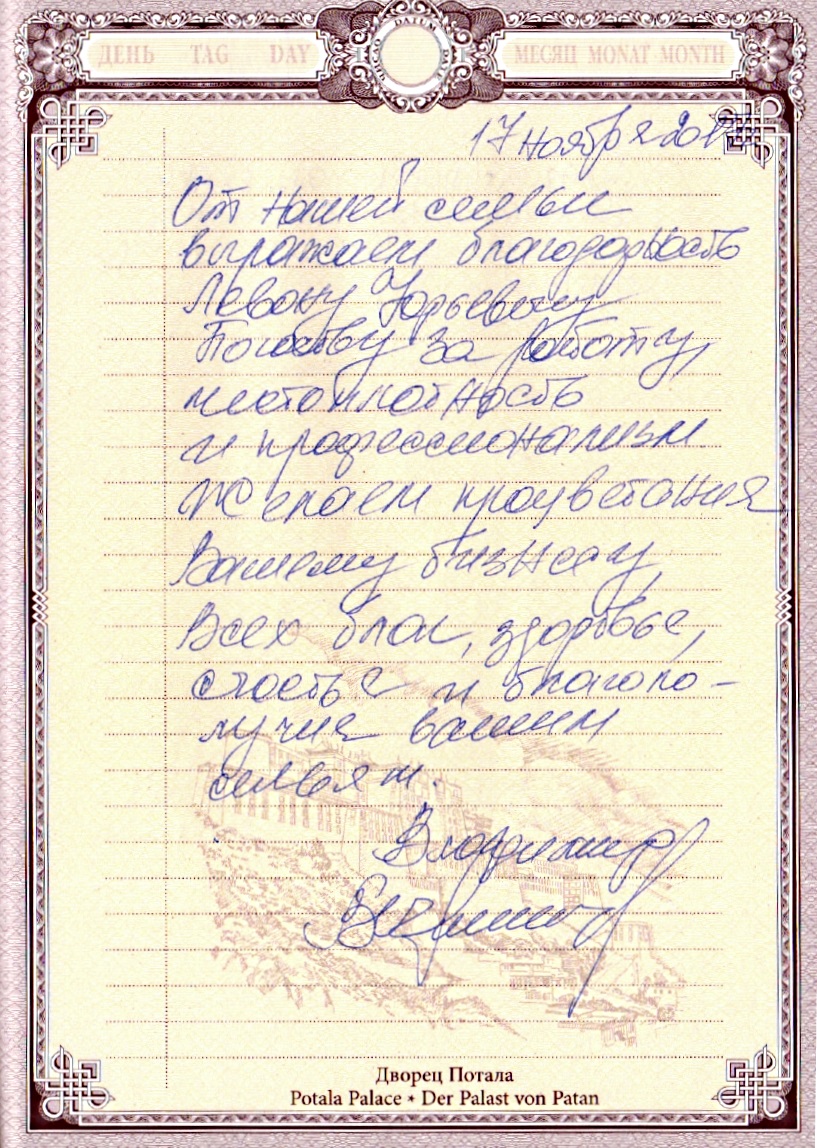 ДЕНЬ TAG DAY
МЕСЯЦ MONAT MONTH
17 ноября
От нашей семьи
выражаем благодарность
Левону Юрьевичу
за работу,
и профессионализм
Желаем процветания
Вашему бизнесу,
Всех благ, здоровье,
счастье и благопо-
лучия вашим
семьям.
Владимир
Дворец Потала
Potala Palace * Der Palast von Patan